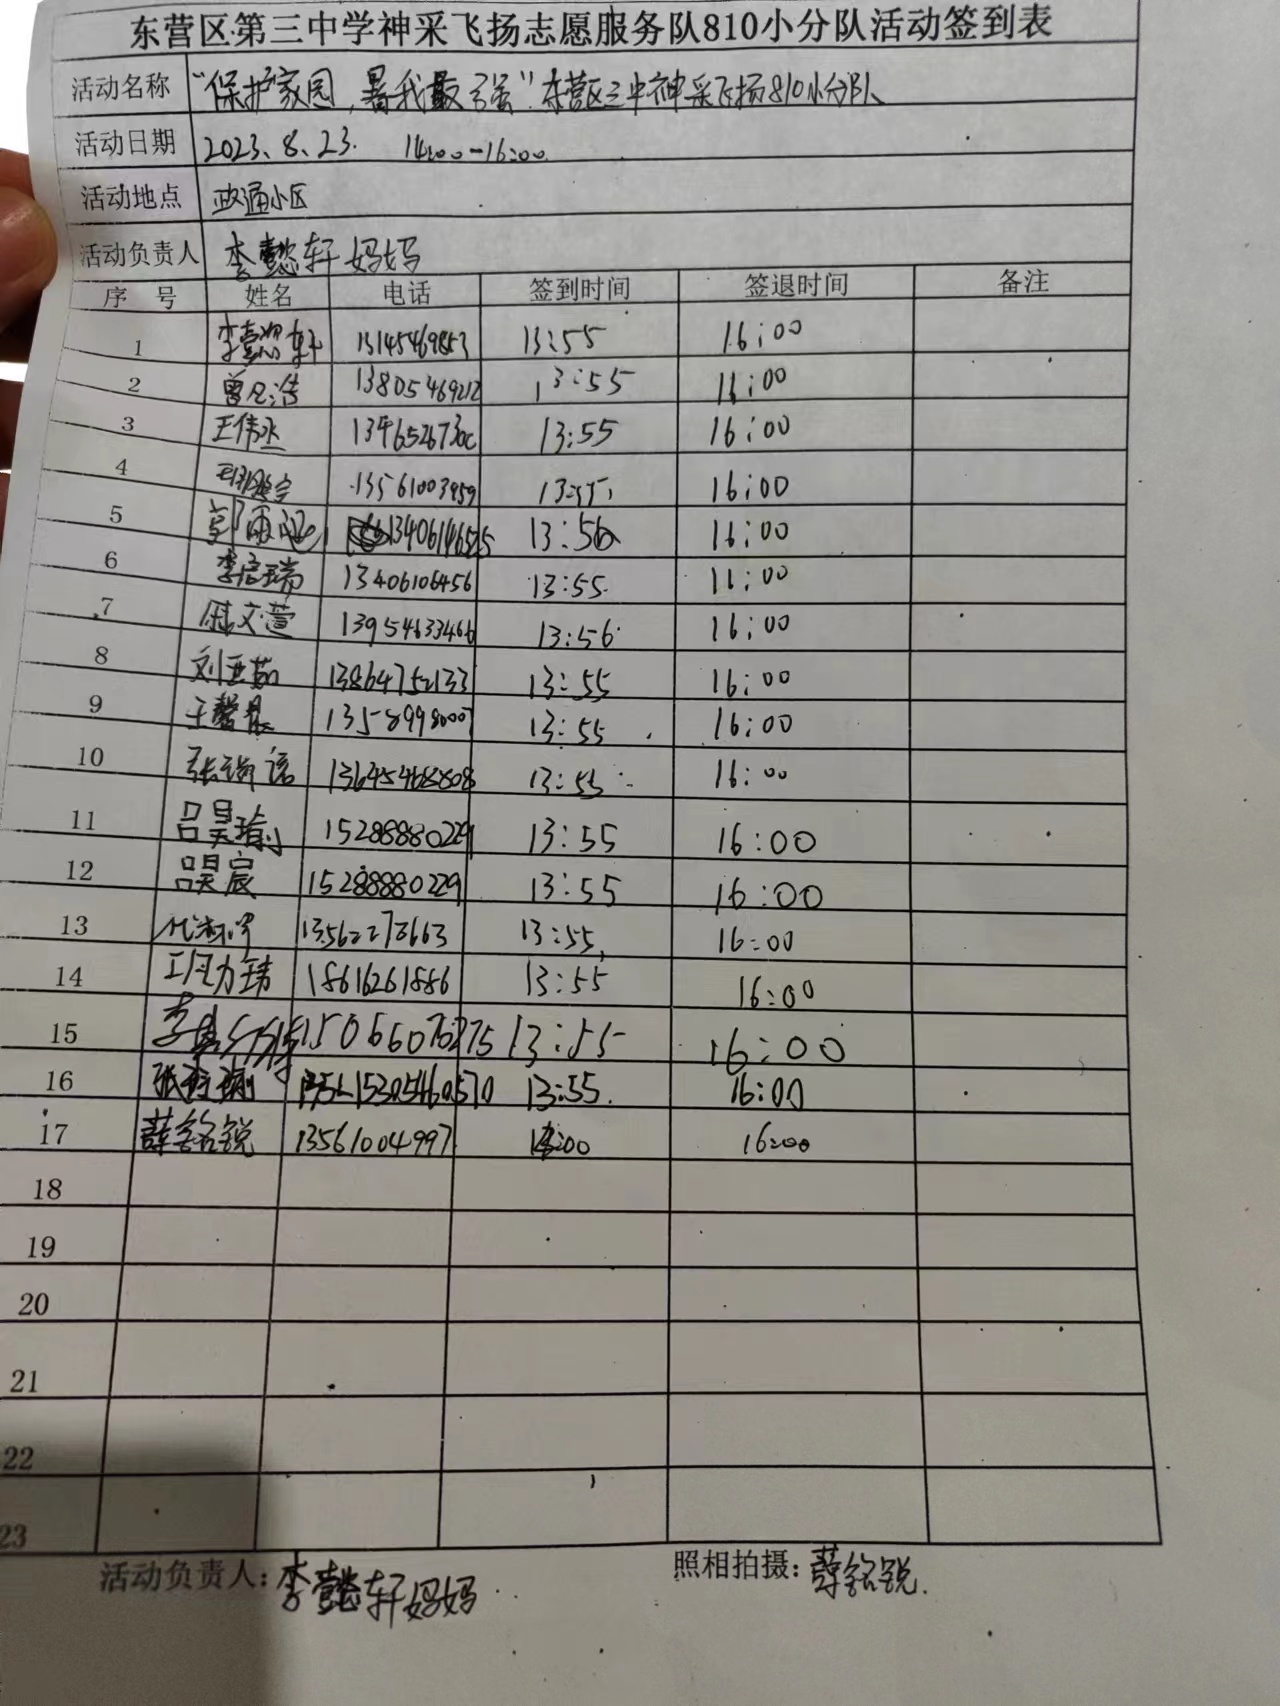 东营区第三中学神采飞扬志愿服务队810小分队活动签到表
活动名称 “保护家园,暑我最强”东营区三中神采飞扬810小分队
活动日期 2023.8.23. 14:00-16:00
活动地点 政通小区
活动负责人 李懿轩妈妈
序 号 姓名 电话 签到时间 签退时间 备注
1 李懿轩 13145469853 13:55 16:00
2 13805469212 13:55 16:00
3 王伟丞 13:55 16:00
4 13561003959 13:55 16:00
5 13:56 16:00
6 李启瑞 13406106456 13:55 16:00
7 陈文萱 13954633466 13:56 16:00
8 刘亚茹 13864752133 13:55 16:00
9 王馨晨 13589980007 13:55 16:00
10 13645468808 13:55 16:00
11 吕昊瑜 15288880229 13:55 16:00
12 吕昊宸 15288880229 13:55 16:00
13 13562278663 13:55 16:00
14 18616261886 13:55 16:00
15 13:55 16:00
16 15305460570 13:55 16:00
17 薛铭锐 13561004997 16:00
18
19
20
21
22
23
活动负责人:李懿轩妈妈 照相拍摄:薛铭锐.